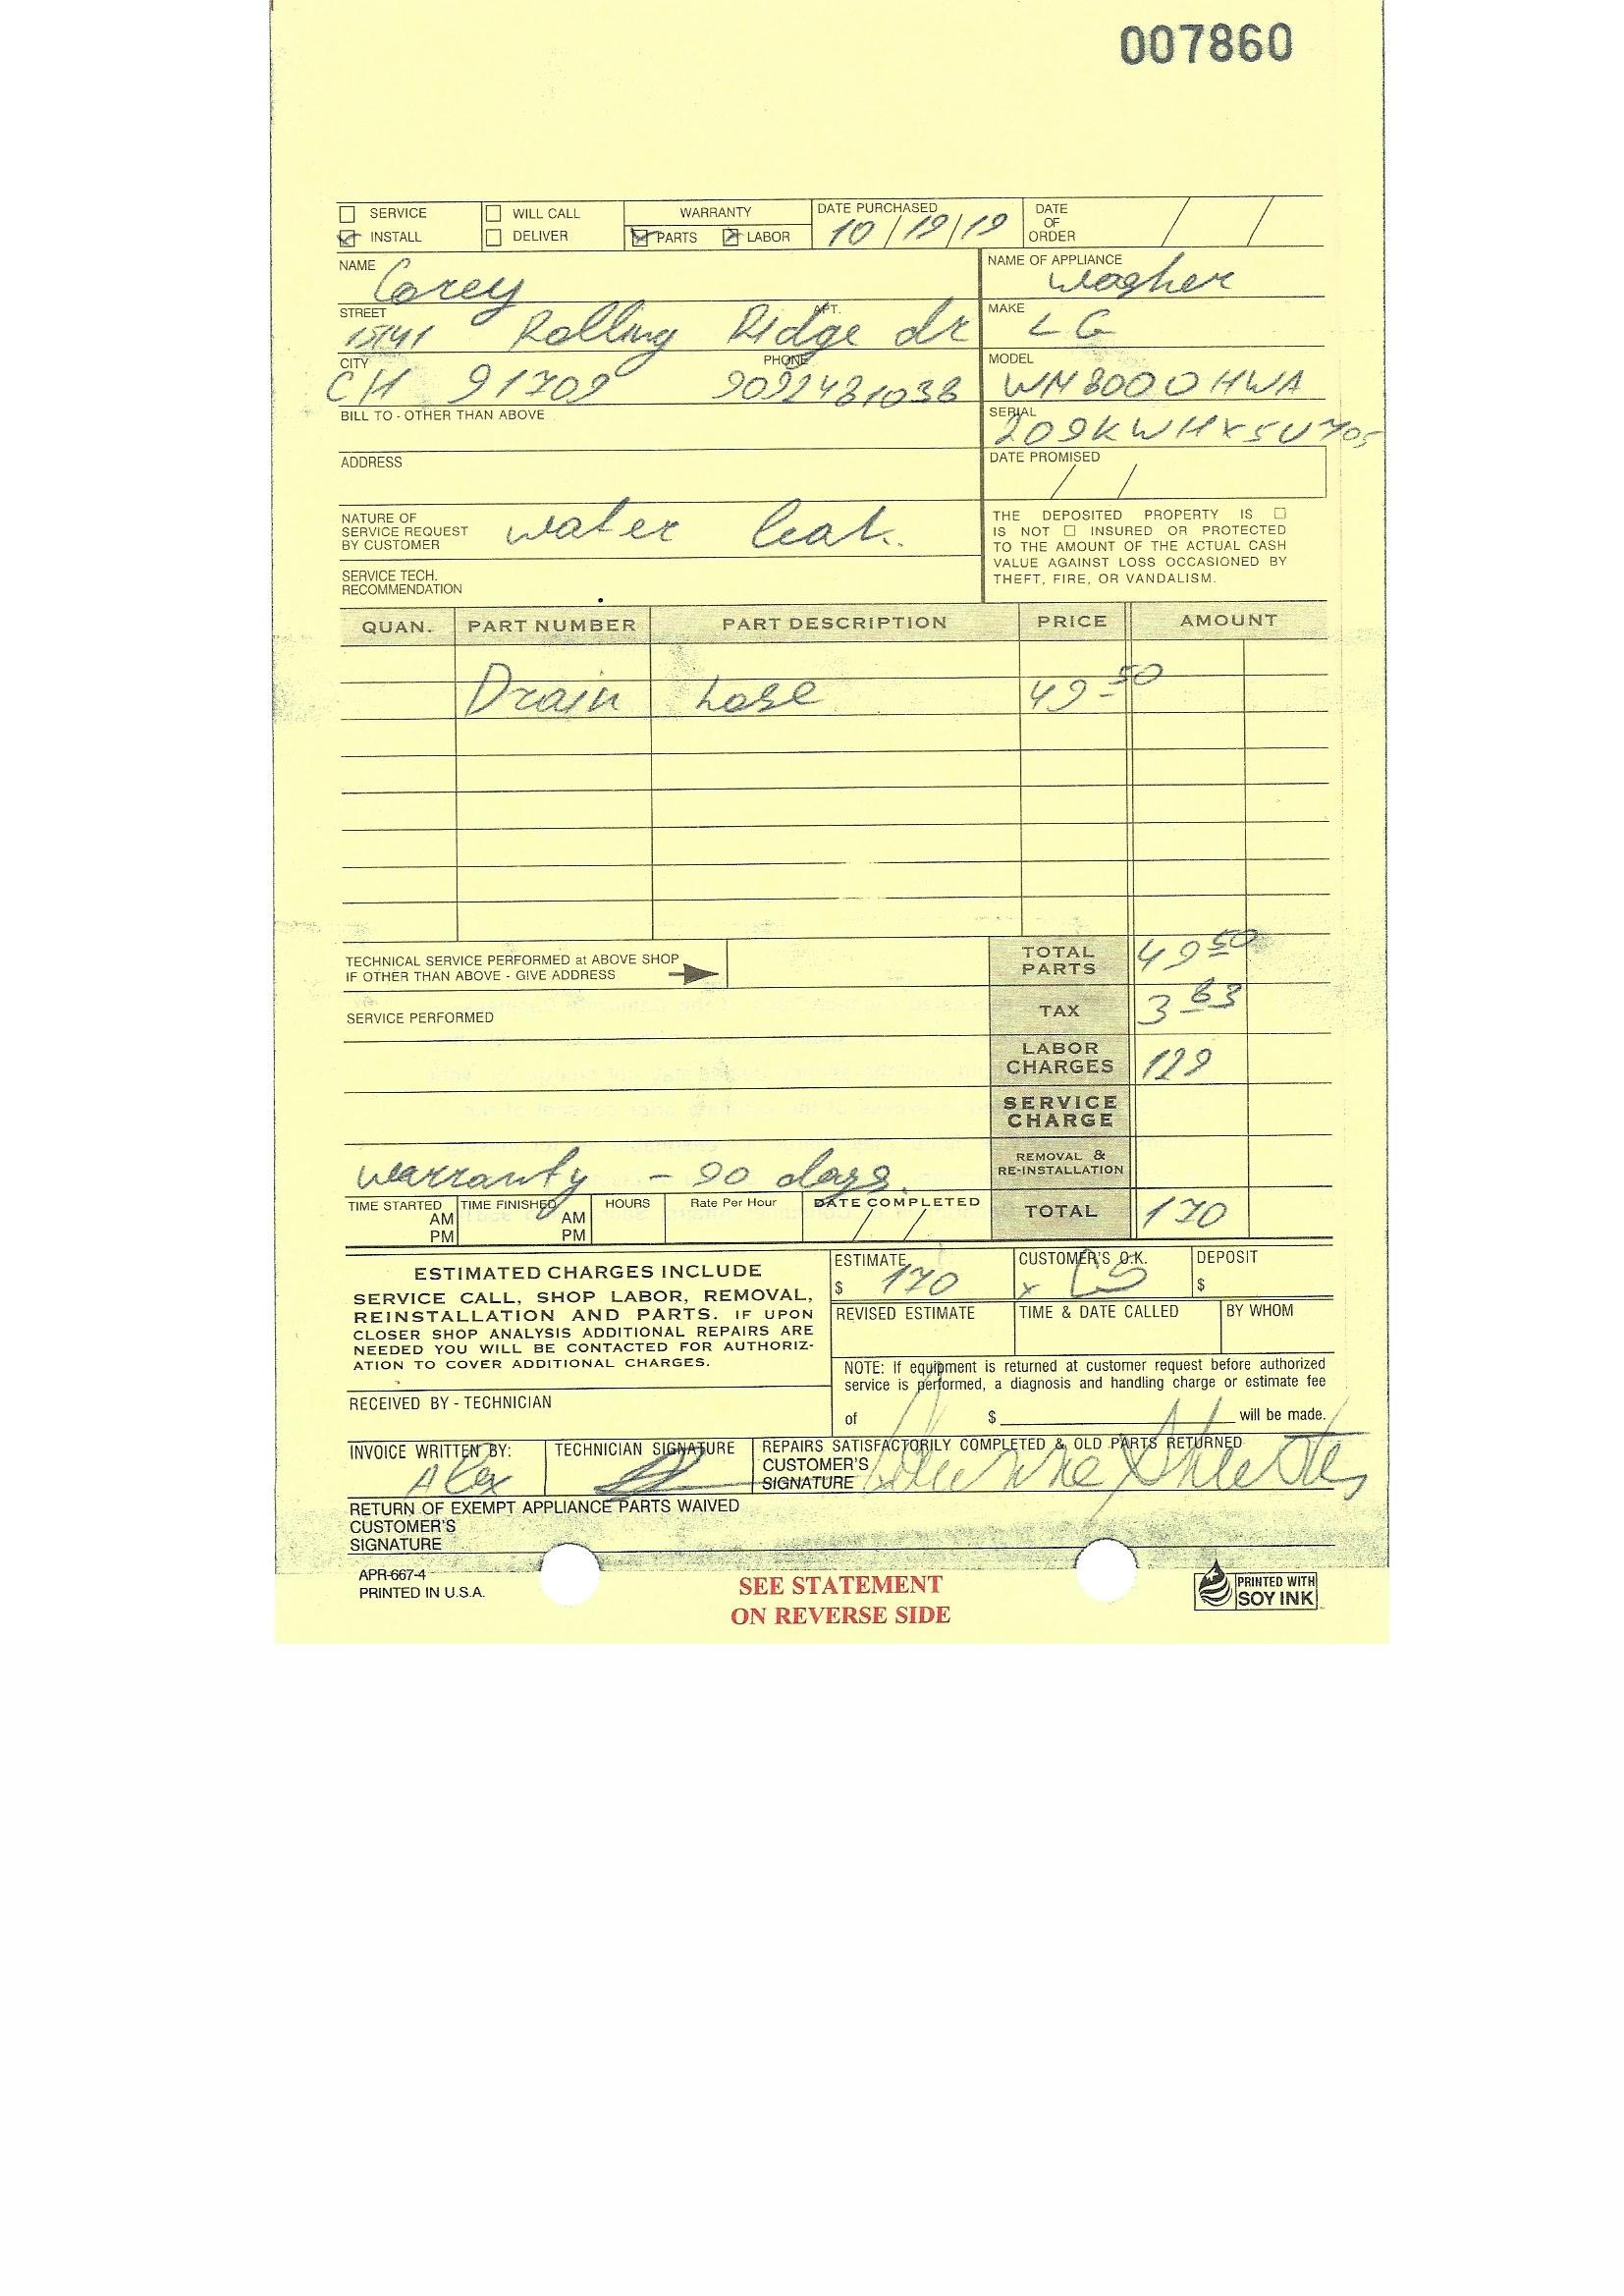 007860
SERVICE WILL CALL WARRANTY DATE PURCHASED DATE OF ORDER
INSTALL DELIVER PARTS LABOR 10/19/19 / /
NAME Corey NAME OF APPLIANCE Washer
STREET APT. Rolling Ridge dr MAKE LG
CITY CH 91709 PHONE 9092481038 MODEL WM8000HWA
BILL TO - OTHER THAN ABOVE SERIAL
ADDRESS DATE PROMISED / /
NATURE OF SERVICE REQUEST BY CUSTOMER water leak.
THE DEPOSITED PROPERTY IS
IS NOT INSURED OR PROTECTED
TO THE AMOUNT OF THE ACTUAL CASH
VALUE AGAINST LOSS OCCASIONED BY
THEFT, FIRE, OR VANDALISM.
SERVICE TECH. RECOMMENDATION
QUAN. PART NUMBER PART DESCRIPTION PRICE AMOUNT
Drain hose 49-50
TECHNICAL SERVICE PERFORMED at ABOVE SHOP
IF OTHER THAN ABOVE - GIVE ADDRESS
TOTAL PARTS 49 50
SERVICE PERFORMED
TAX 3
LABOR CHARGES 129
SERVICE CHARGE
REMOVAL & RE-INSTALLATION
warranty - 90 days.
TIME STARTED AM PM TIME FINISHED AM PM HOURS Rate Per Hour DATE COMPLETED / / TOTAL 170
ESTIMATED CHARGES INCLUDE
SERVICE CALL, SHOP LABOR, REMOVAL,
REINSTALLATION AND PARTS. IF UPON
CLOSER SHOP ANALYSIS ADDITIONAL REPAIRS ARE
NEEDED YOU WILL BE CONTACTED FOR AUTHORIZ-
ATION TO COVER ADDITIONAL CHARGES.
ESTIMATE $ 170 CUSTOMER'S O.K. x CS DEPOSIT $
REVISED ESTIMATE TIME & DATE CALLED BY WHOM
NOTE: If equipment is returned at customer request before authorized
service is performed, a diagnosis and handling charge or estimate fee
of $ will be made.
RECEIVED BY - TECHNICIAN
INVOICE WRITTEN BY: Alex TECHNICIAN SIGNATURE REPAIRS SATISFACTORILY COMPLETED & OLD PARTS RETURNED
CUSTOMER'S SIGNATURE
RETURN OF EXEMPT APPLIANCE PARTS WAIVED
CUSTOMER'S
SIGNATURE
APR-667-4
PRINTED IN U.S.A.
SEE STATEMENT
ON REVERSE SIDE
PRINTED WITH
SOY INK